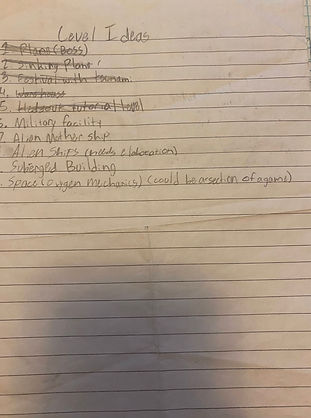 Level Ideas
1. Plane (Boss)
2. Sinking Plane!
3. Festival with tsunami
4. Warehouse
5. Tutorial Level
6. Military facility
7. Alien Mother ship
Alien ships (needs elaboration)
Submerged Building
Space (oxygen mechanics) (could be a section of a game)